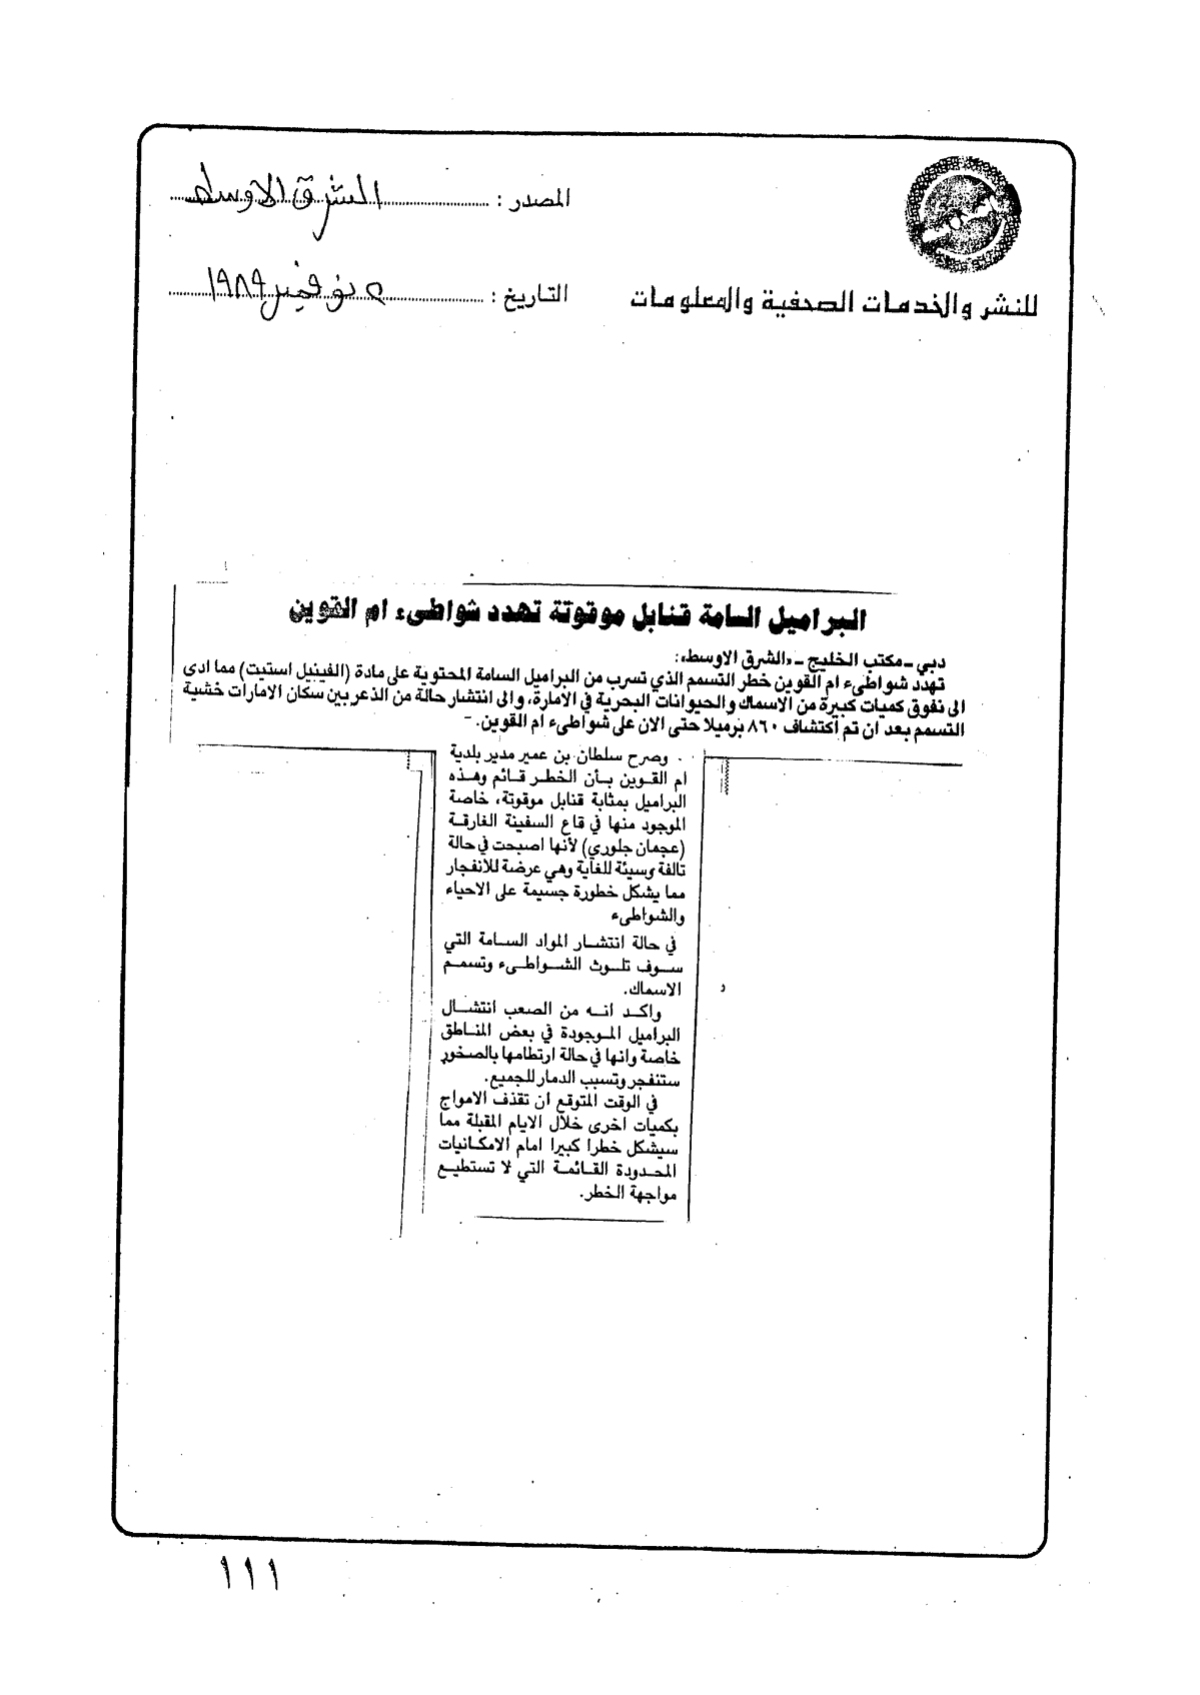 المصدر : الشرق الاوسط
للنشر والخدمات الصحفية والمعلومات
التاريخ : ٥ نوفمبر ١٩٨٩
البراميل السامة قنابل موقوتة تهدد شواطىء ام القوين
دبي ـ مكتب الخليج ـ «الشرق الاوسط»:
تهدد شواطىء ام القوين خطر التسمم الذي تسرب من البراميل السامة المحتوية على مادة (الفينيل استيت) مما ادى
الى نفوق كميات كبيرة من الاسماك والحيوانات البحرية في الامارة، والى انتشار حالة من الذعر بين سكان الامارات خشية
التسمم بعد ان تم اكتشاف ٨٦٠ برميلا حتى الان على شواطىء ام القوين. -
وصرح سلطان بن عمير مدير بلدية
ام القوين بأن الخطر قائم وهذه
البراميل بمثابة قنابل موقوتة، خاصة
الموجود منها في قاع السفينة الغارقة
(عجمان جلوري) لأنها اصبحت في حالة
تالفة وسيئة للغاية وهي عرضة للانفجار
مما يشكل خطورة جسيمة على الاحياء
والشواطىء
في حالة انتشار المواد السامة التي
سوف تلوث الشواطىء وتسمم
الاسماك.
واكد انه من الصعب انتشال
البراميل الموجودة في بعض المناطق
خاصة وانها في حالة ارتطامها بالصخور
ستنفجر وتسبب الدمار للجميع.
في الوقت المتوقع ان تقذف الامواج
بكميات اخرى خلال الايام المقبلة مما
سيشكل خطرا كبيرا امام الامكانيات
المحدودة القائمة التي لا تستطيع
مواجهة الخطر.
١١١